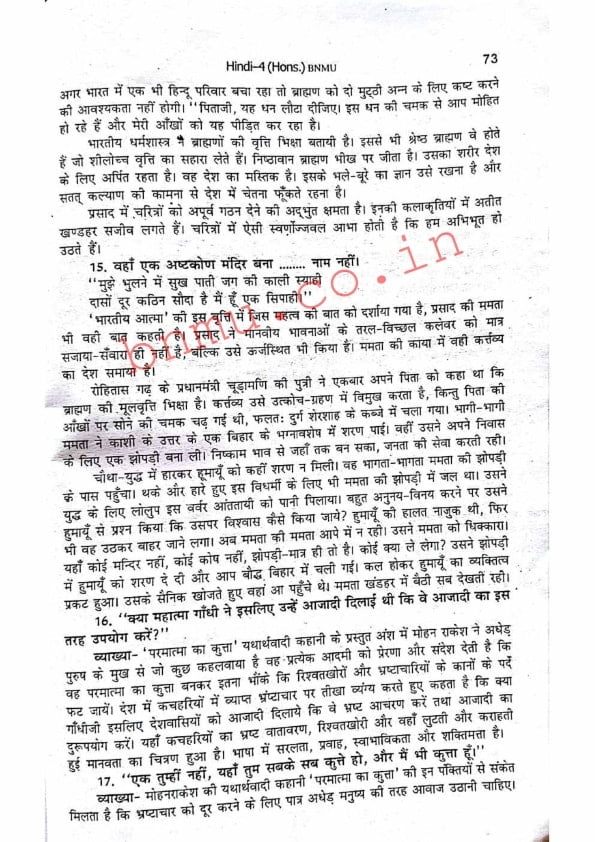 Hindi-4 (Hons.) BNMU
73
अगर भारत में एक भी हिन्दू परिवार बचा रहा तो ब्राह्मण को दो मुट्ठी अन्न के लिए कष्ट करने
की आवश्यकता नहीं होगी। "पिताजी, यह धन लौटा दीजिए। इस धन की चमक से आप मोहित
हो रहे हैं और मेरी आँखों को यह पीड़ित कर रहा है।
भारतीय धर्मशास्त्र ने ब्राह्मणों की वृत्ति भिक्षा बतायी है। इससे भी श्रेष्ठ ब्राह्मण वे होते
हैं जो शीलोच्च वृत्ति का सहारा लेते हैं। निष्ठावान ब्राह्मण भीख पर जीता है। उसका शरीर देश
के लिए अर्पित रहता है। वह देश का मस्तिक है। इसके भले-बूरे का ज्ञान उसे रखना है और
सतत् कल्याण की कामना से देश में चेतना फूँकते रहना है।
प्रसाद में चरित्रों को अपूर्व गठन देने की अद्भुत क्षमता है। इनकी कलाकृतियों में अतीत
खण्डहर सजीव लगते हैं। चरित्रों में ऐसी स्वर्णोज्जवल आभा होती है कि हम अभिभूत हो
उठते हैं।
15. वहाँ एक अष्टकोण मंदिर बना ........ नाम नहीं।
"मुझे भुलने में सुख पाती जग की काली स्याही
दासों दूर कठिन सौदा है मैं हूँ एक सिपाही।"
'भारतीय आत्मा' की इस वृत्ति में जिस महत्व की बात को दर्शाया गया है, प्रसाद की ममता
भी वही बात कहती है। प्रसाद ने मानवीय भावनाओं के तरल-विच्छल कलेवर को मात्र
सजाया-सँवारा ही नहीं है, बल्कि उसे ऊर्जस्थित भी किया है। ममता की काया में वही कर्त्तव्य
का देश समाया है।
रोहितास गढ़ के प्रधानमंत्री चूड़ामणि की पुत्री ने एकबार अपने पिता को कहा था कि
ब्राह्मण की मूलवृत्ति भिक्षा है। कर्त्तव्य उसे उत्कोच-ग्रहण में विमुख करता है, किन्तु पिता की
आँखों पर सोने की चमक चढ़ गई थी, फलतः दुर्ग शेरशाह के कब्जे में चला गया। भागी-भागी
ममता ने काशी के उत्तर के एक बिहार के भग्नावशेष में शरण पाई। वहीं उसने अपने निवास
के लिए एक झोपड़ी बना ली। निष्काम भाव से जहाँ तक बन सका, जनता की सेवा करती रही।
चौथा-युद्ध में हारकर हूमायूँ को कहीं शरण न मिली। वह भागता-भागता ममता की झोपड़ी
के पास पहुँचा। थके और हारे हुए इस विधर्मी के लिए भी ममता की झोपड़ी में जल था। उसने
युद्ध के लिए लोलुप इस वर्वर आंततायी को पानी पिलाया। बहुत अनुनय-विनय करने पर उसने
हुमायूँ से प्रश्न किया कि उसपर विश्वास कैसे किया जाये? हुमायूँ की हालत नाजुक थी, फिर
भी वह उठकर बाहर जाने लगा। अब ममता की ममता आपे में न रही। उसने ममता को धिक्कारा।
यहाँ कोई मन्दिर नहीं, कोई कोष नहीं, झोपड़ी-मात्र ही तो है। कोई क्या ले लेगा? उसने झोपड़ी
में हुमायूँ को शरण दे दी और आप बौद्ध बिहार में चली गई। कल होकर हुमायूँ का व्यक्तित्व
प्रकट हुआ। उसके सैनिक खोजते हुए वहां आ पहुँचे थे। ममता खंडहर में बैठी सब देखती रही।
16. "क्या महात्मा गाँधी ने इसलिए उन्हें आजादी दिलाई थी कि वे आजादी का इस
तरह उपयोग करें?"
व्याख्या- 'परमात्मा का कुत्ता' यथार्थवादी कहानी के प्रस्तुत अंश में मोहन राकेश ने अधेड़
पुरुष के मुख से जो कुछ कहलवाया है वह प्रत्येक आदमी को प्रेरणा और संदेश देती है कि
वह परमात्मा का कुत्ता बनकर इतना भौंके कि रिश्वतखोरों और भ्रष्टाचारियों के कानों के पर्दे
फट जायें। देश में कचहरियों में व्याप्त भ्रंष्टाचार पर तीखा व्यंग्य करते हुए कहता है कि क्या
गाँधीजी इसलिए देशवासियों को आजादी दिलाये कि वे भ्रष्ट आचरण करें तथा आजादी का
दुरूपयोग करें। यहाँ कचहरियों का भ्रष्ट वातावरण, रिश्वतखोरी और वहाँ लुटती और कराहती
हुई मानवता का चित्रण हुआ है। भाषा में सरलता, प्रवाह, स्वाभाविकता और शक्तिमत्ता है।
17. "एक तुम्हीं नहीं, यहाँ तुम सबके सब कुत्ते हो, और मैं भी कुत्ता हूँ।"
व्याख्या- मोहनराकेश की यथार्थवादी कहानी 'परमात्मा का कुत्ता' की इन पंक्तियों से संकेत
मिलता है कि भ्रष्टाचार को दूर करने के लिए पात्र अधेड़ मनुष्य की तरह आवाज उठानी चाहिए।
bnmu.co.in